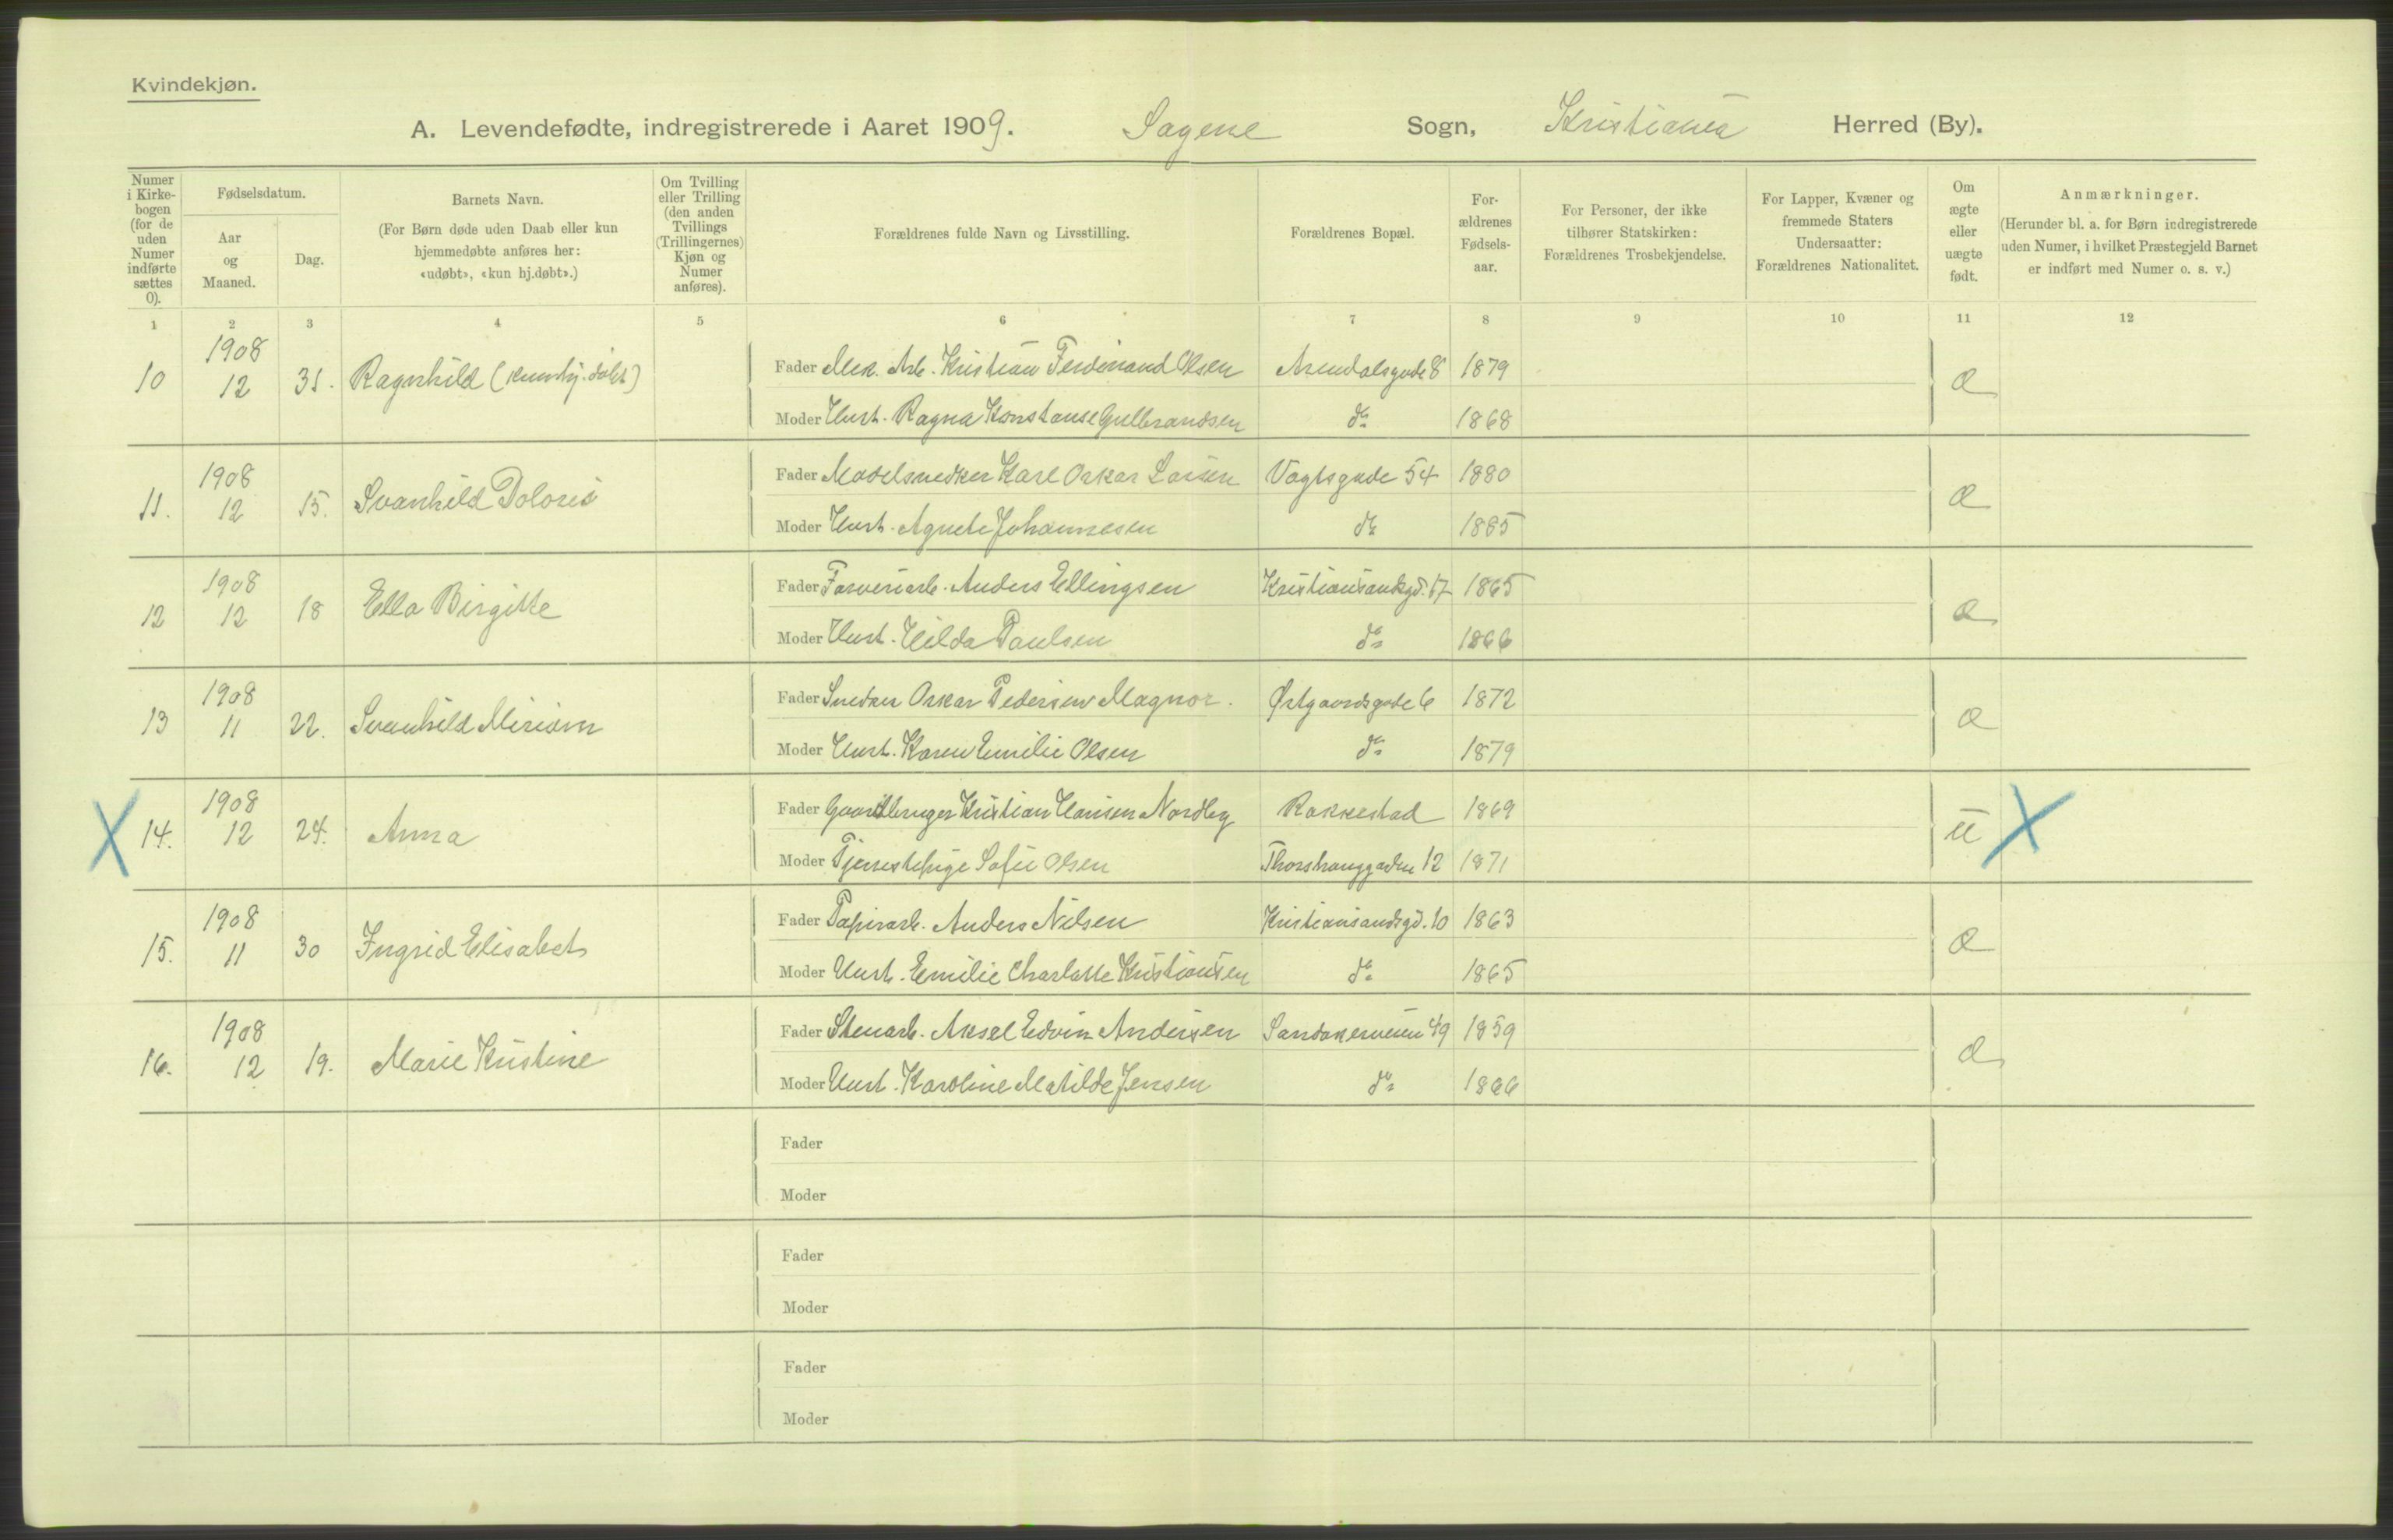 Kvindekjøn.
A. Levendefødte, indregistrerede i Aaret 1909. Sagene Sogn, Kristiania Herred (By).
Numer i Kirkebogen (for de uden Numer indførte sættes 0).
Fødselsdatum.
Aar og Maaned.
Dag.
Barnets Navn.
(For Børn døde uden Daab eller kun hjemmedøbte anføres her: «udøbt», «kun hj.døbt».)
Om Tvilling eller Trilling (den anden Tvillings (Trillingernes) Kjøn og Numer anføres).
Forældrenes fulde Navn og Livsstilling.
Forældrenes Bopæl.
For-ældrenes Fødsels-aar.
For Personer, der ikke tilhører Statskirken: Forældrenes Trosbekjendelse.
For Lapper, Kvæner og fremmede Staters Undersaatter: Forældrenes Nationalitet.
Om ægte eller uægte født.
Anmærkninger.
(Herunder bl. a. for Børn indregistrerede uden Numer, i hvilket Præstegjeld Barnet er indført med Numer o. s. v.)
1 2 3 4 5 6 7 8 9 10 11 12
10 1908 12 31. Ragnhild (kun hj. døbt) Fader Mek. Arb. Kristian Ferdinand Olsen Arendalsgade 8 1879 Æ
Moder Hust. Ragna Konstanse Gulbrandsen do 1868
11. 1908 12 15. Svanhild Doloris Fader Modelsnedker Karl Oskar Larsen Vogtsgade 54 1880 Æ
Moder Hust. Agnete Johannesen do 1885
12 1908 12 18 Ella Birgitte Fader Farveriarb. Anders Ellingsen Kristiansandsgd. 17 1865 Æ
Moder Hust. Hilda Paulsen do 1866
13 1908 11 22. Svanhild Miriam Fader Snedker Oskar Pedersen Magnor. Østgaardsgade 6 1872 Æ
Moder Hust. Karen Emilie Olsen do 1879
X 14. 1908 12 24. Anna Fader Gaardbruger Kristian Hansen Nordby Rakkestad 1869 U X
Moder Tjenestepige Sofie Olsen Thorshauggaden 12 1871
15. 1908 11 30 Ingrid Elisabet Fader Papirarb. Anders Nilsen Kristiansandsgd. 10 1863 Æ
Moder Hust. Emilie Charlotte Kristiansen do 1865
16. 1908 12 19. Marie Kristine Fader Stenarb. Aksel Edvin Andersen Sandakerveien 49 1859 Æ
Moder Hust. Karoline Matilde Jensen do 1866
Fader
Moder
Fader
Moder
Fader
Moder